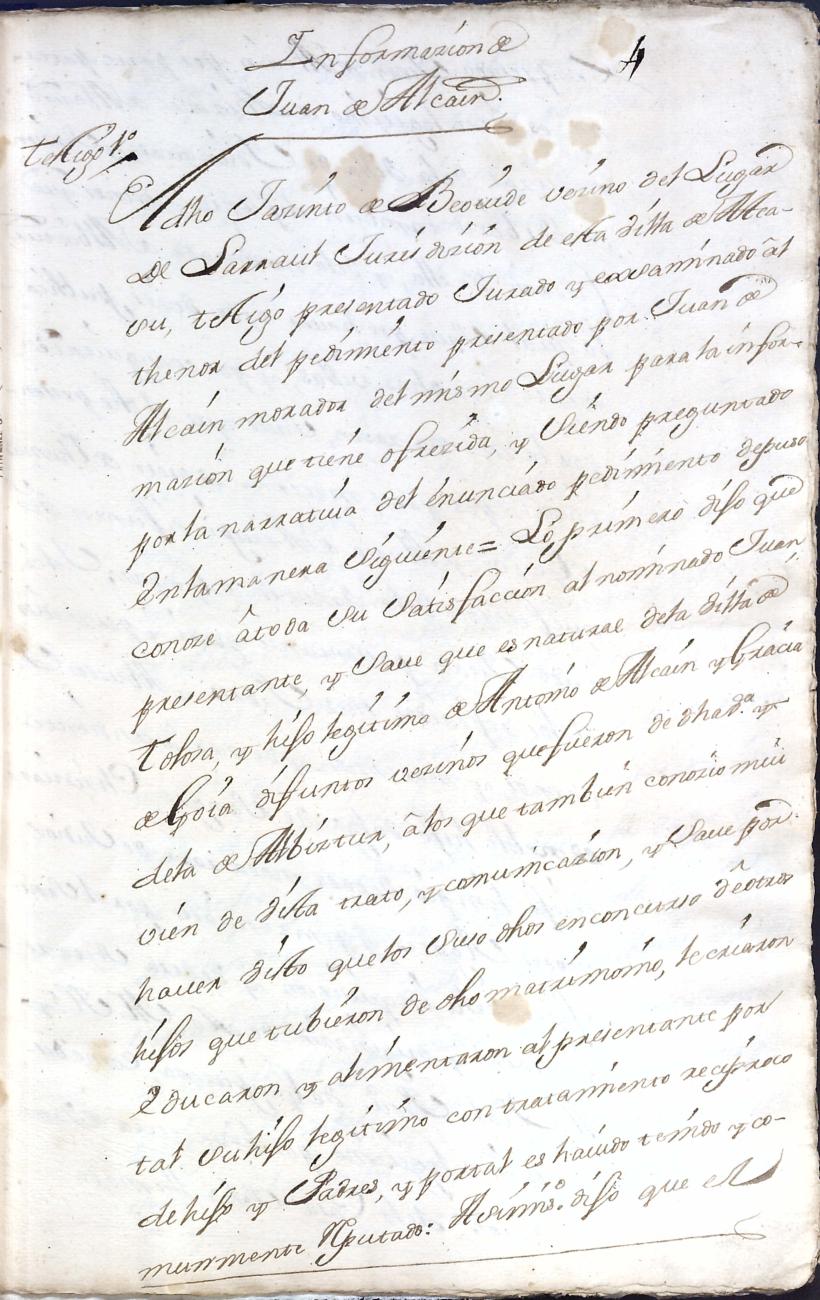 Informazion de
4
Juan de Alcain.
testigo 1º.
El dho Jazinto de Beovide vezino del Lugar
de Larraul Jurisdizión de esta villa de Alca-
zu, testigo presentado Jurado y exsaminado ăl
thenor del pedimiento presentado por Juan de
Alcain morador del mismo Lugar para la infor-
mazión que tiene ofrezida, y siendo preguntado
por la narratiua del enunciado pedimiento depuso
en la manera siguiente= Lo primero dijo que
conoze âtoda su satisfacción al nominado Juan
presentante, y saue que es natural dela villa de
Tolosa, y hijo legitimo de Antonio de Alcain y Gracia
de Goia difuntos vezinos que fueron de dha Vª. y
dela de Albiztur, âlos que también conozio mui
vien de vista trato, y comunicazion, y saue por
hauer visto que los suso dhos en concurso deôtros
hijos que tubieron de dho matrimonio, le criaron
educaron y alimentaron al presentante por
tal su hijo legitimo con tratamiento reciproco
de hijo y Padres, y por tal es hauido tenido y co-
munmente Rputado: Asimisº. dijo que el